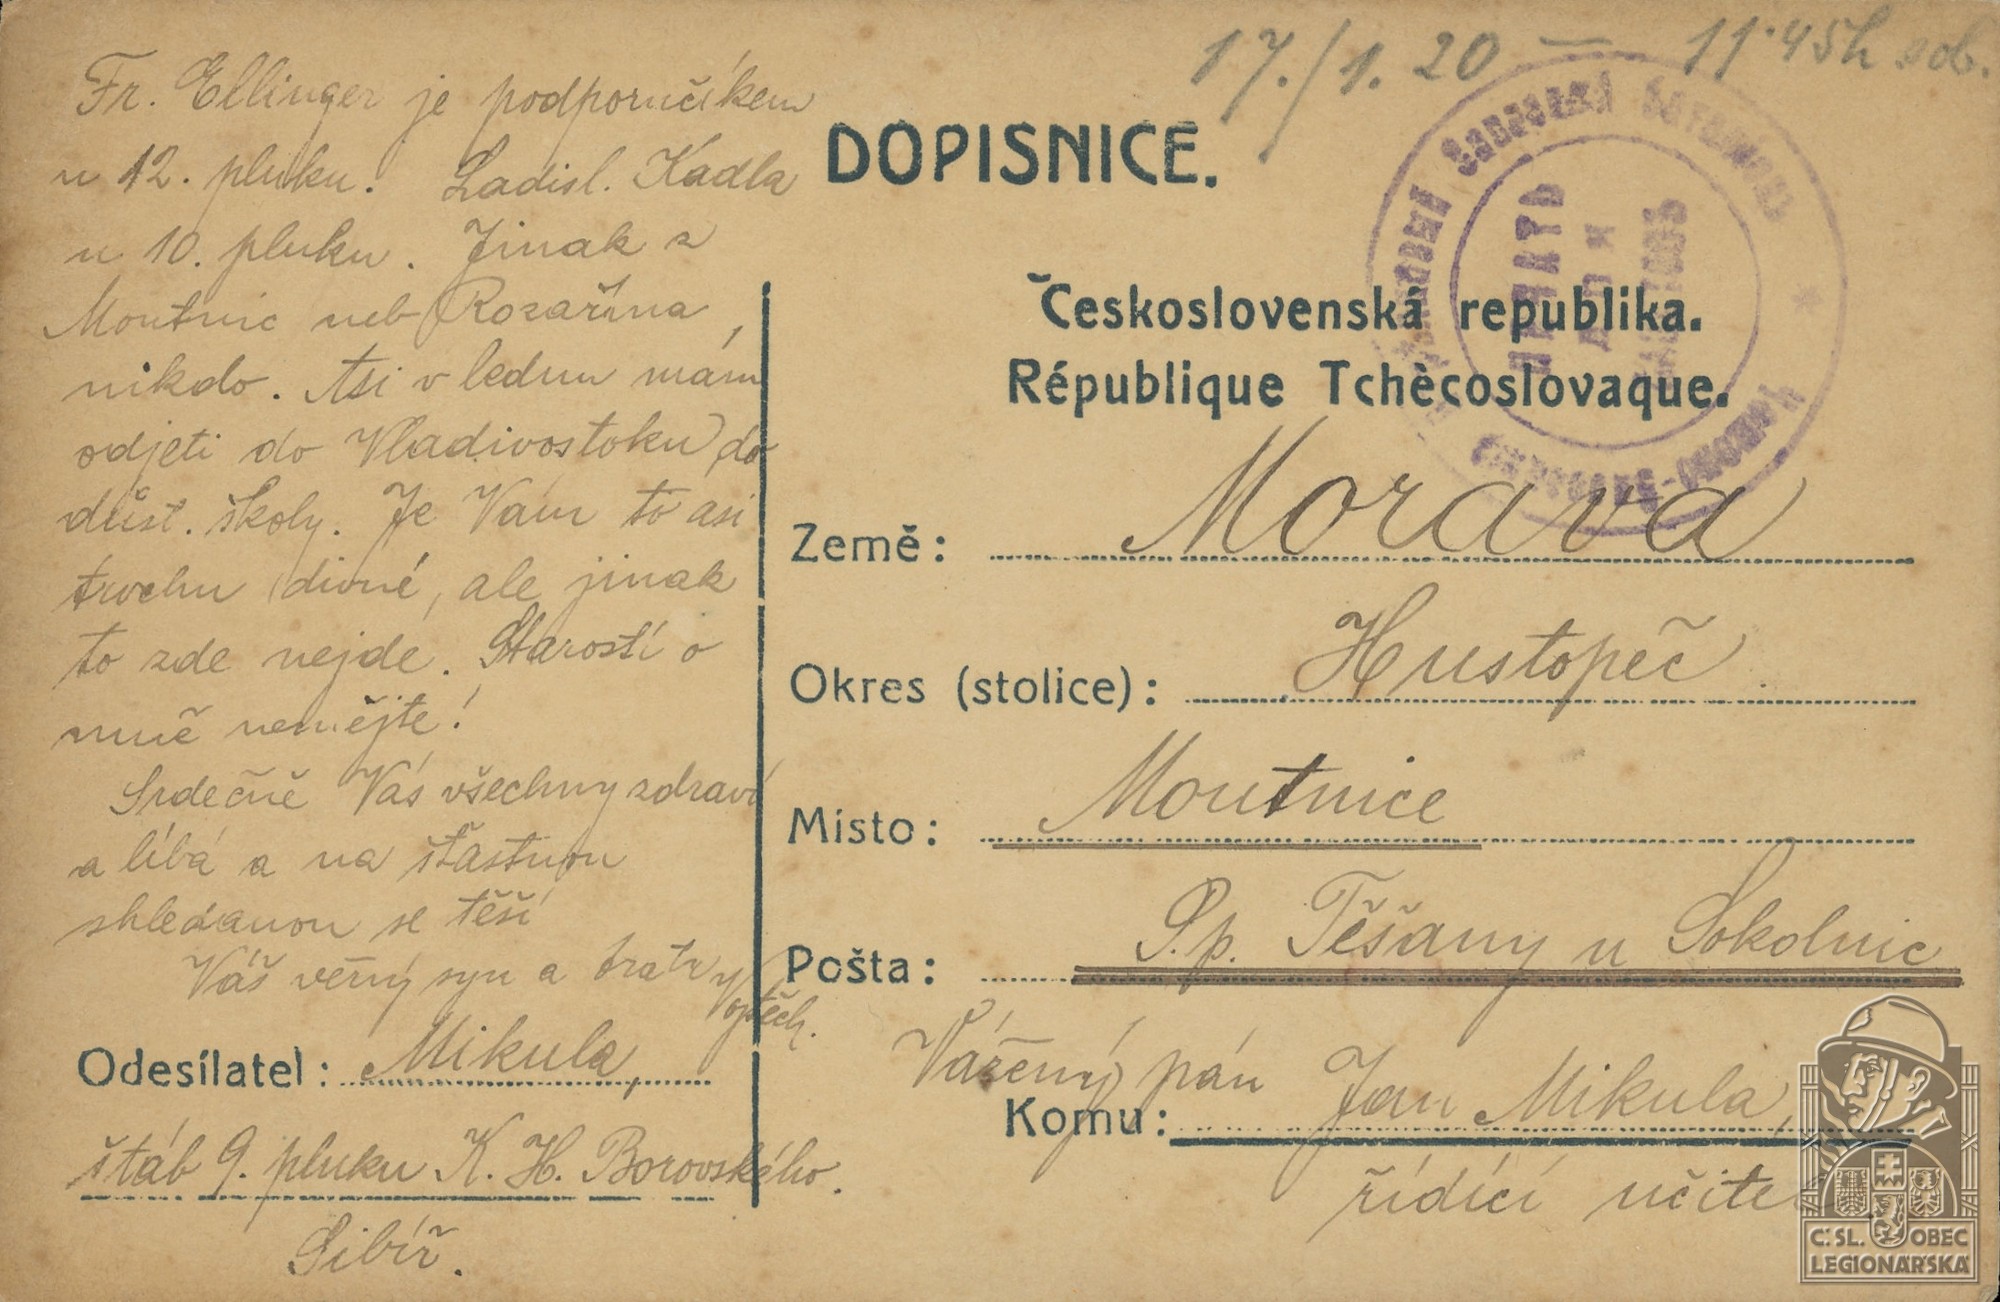 17./1.20 — 11.45h
Fr. Ellinger je podporučíkem
u 12. pluku. Ladisl. Kadla
u 10. pluku. Jinak z
Moutnic neb Rozařína,
nikdo. Asi v lednu mám
odjeti do Vladivostoku do
důst. školy. Je Vám to asi
trochu divné, ale jinak
to zde nejde. Starostí o
mně nemějte!
Srdečně Vás všechny zdraví
a líbá a na šťastnou
shledanou se těší
Váš věrný syn a bratr Vojtěch.
Odesílatel: Mikula,
štáb 9. pluku K. H. Borovského.
Sibíř.
DOPISNICE.
Československá republika.
République Tchècoslovaque.
Země: Morava
Okres (stolice): Hustopeč
Místo: Moutnice
Pošta: P.p. Těšany u Sokolnic
Vážený pán
Komu: Jan Mikula,
řídící
ČSL. OBEC
LEGIONÁŘSKÁ